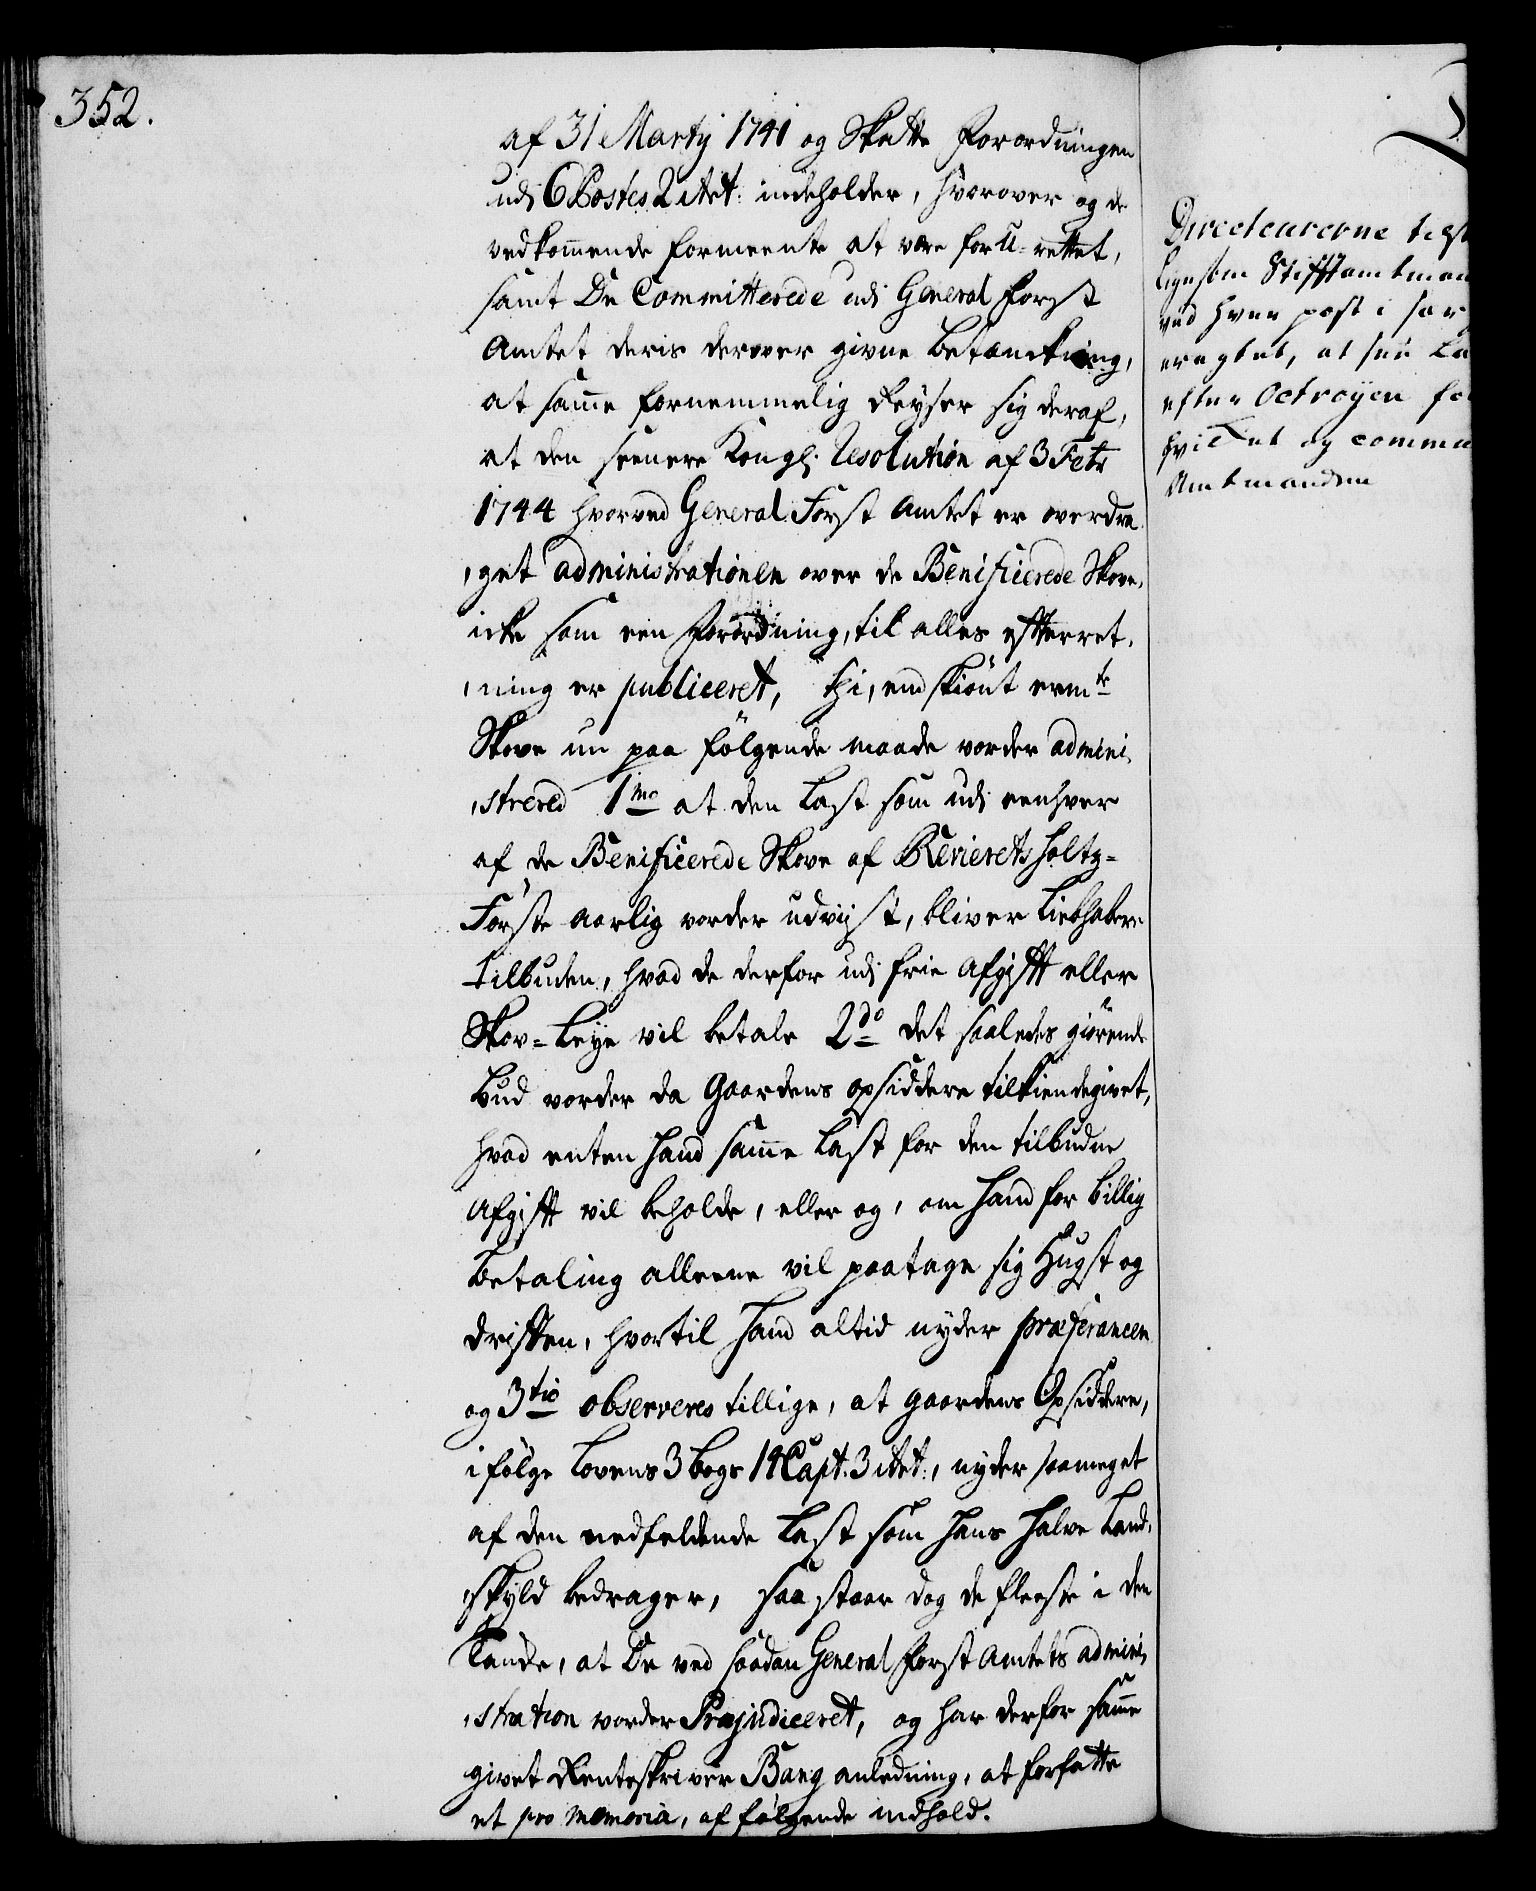 352.
af 31 Martij 1741 og Skatte Forordningen
udi 6 Postes 2 Art: indeholder, hvorover og de
vedkom̄ende formeente at være for U-rettet,
samt De Committerede udi General Forst
Amtet deris derover givne Betænckning,
at sam̄e fornemmelig Reyser sig deraf,
at den seenere Kongl: Resolution af 3 Febr
1744 hvorved General Forst Amtet er overdra
,get administrationen over de Benificerede Skove,
icke som een Forordning, til alles efterret,
,ning er publiceret, thi, endskiönt ermte
Skove nu paa fölgende maade vorder admini,
,strered 1mo at den Last som udi eenhver
af de Benificerede Skove af Revierets Holtz-
Förste aarlig vorder udviist, bliver Liebhabere
tilbuden, hvad de derfor udi frie Afgifft eller
Skov-Leye vil betale 2do det saaledes giörende
Bud vorder da Gaardens opsiddere tilkiendegivet,
hvad enten Hand sam̄e Last for den tilbudne
Afgifft vil beholde, eller og, om Hand for billig
Betaling alleene vil paatage sig Hugst og
Driften, hvortil Hand altid nyder præferancen
og 3tio observeres tillige, at Gaardens Opsiddere,
ifölge Lovens 3 Bogs 14 Capt. 3 Art:, nyder saameget
af den nedfeldende Last som Hans Halve Land,
,skyld bedrager, saa staar dog de fleeste i den
Tancke, at De ved saadan General Forst Amtets admini,
,stration vorder Præjudiceret, og har derfor sam̄e
givet Renteskriver Bang anledning, at forfatte
et pro memoria, af fölgende indhold.
Directeurerne
ligesom Stifftamtman
ved hver post i sær
eragtet, at
efter Octroyen
hvilket og
Amtmanden